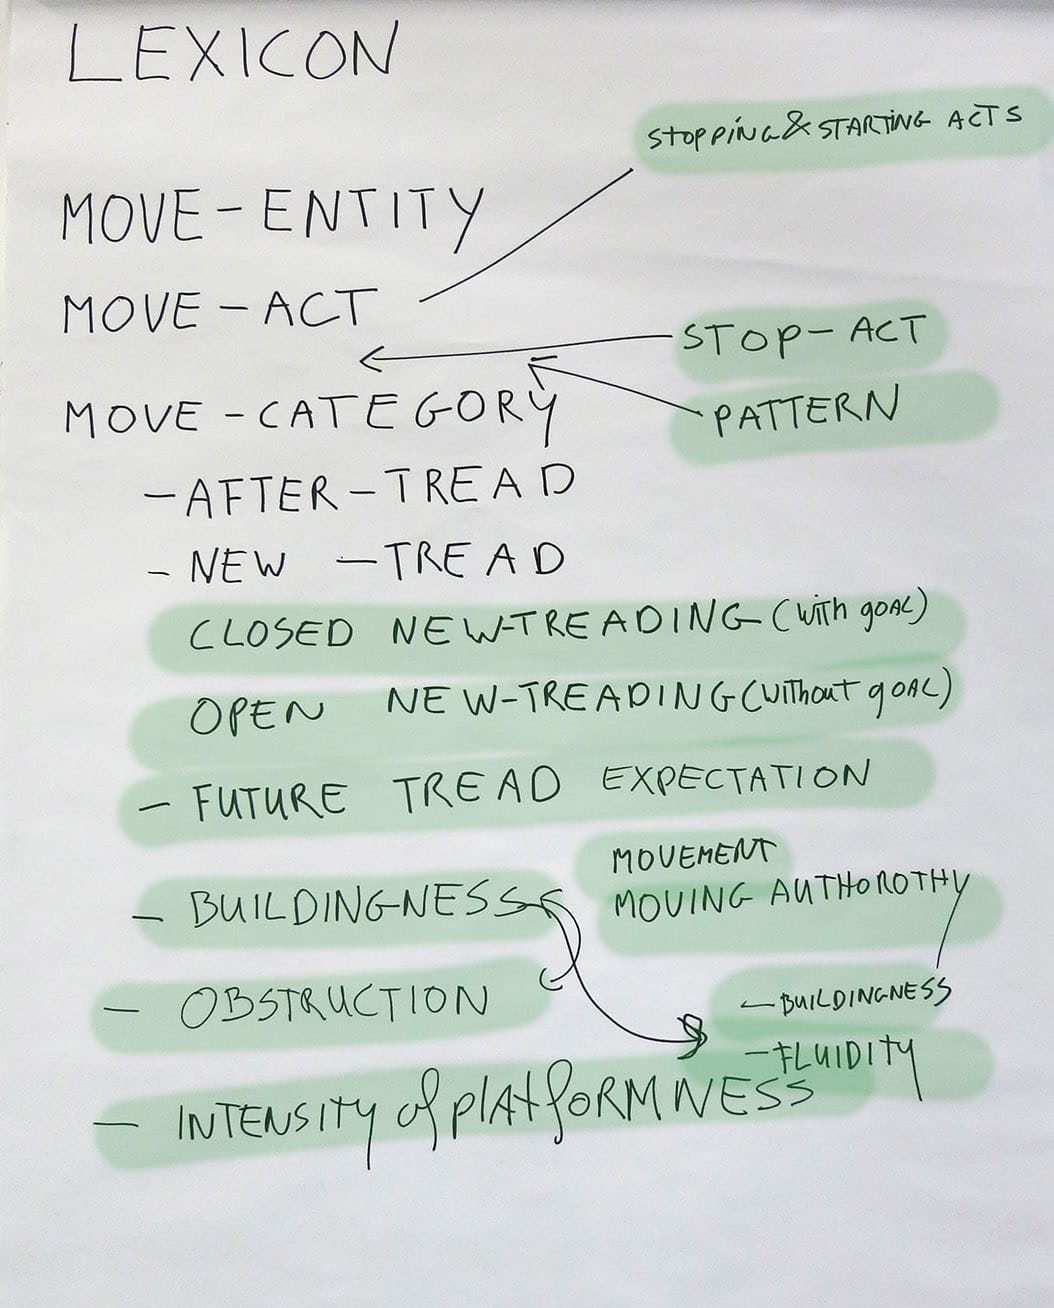 LEXICON
STOPPING & STARTING ACTS
MOVE-ENTITY
MOVE-ACT
STOP-ACT
MOVE-CATEGORY
PATTERN
-AFTER-TREAD
-NEW -TREAD
CLOSED NEW-TREADING (with goAL)
OPEN NEW-TREADING (WiThouT goAL)
- FUTURE TREAD EXPECTATION
MOVEMENT
MOVING AUTHOROTHY
- BUILDINGNESS
- OBSTRUCTION
-BUILDINGNESS
-FLUIDITY
- INTENSITY of plATfORMNESS